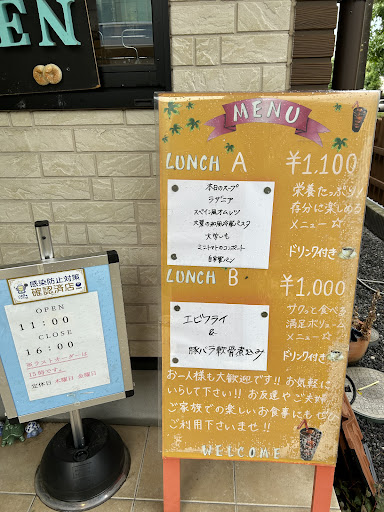 EN
感染防止対策
確認済店
OPEN
11:00
CLOSE
16:00
※ラストオーダーは
15時です。
定休日 水曜日 金曜日
MENU
LUNCH A ¥1,100
本日のスープ
ラザニア
スペイン風オムレツ
大学いも
ミニトマトのコンポート
自家製パン
栄養たっぷり♪
存分に楽しめる
メニュー☆
ドリンク付き
LUNCH B ¥1,000
エビフライ
&
豚バラ軟骨煮込み
サクッと食べる
満足ボリューム
メニュー☆
ドリンク付き
お一人様も大歓迎です!! お気軽に
いらして下さい!! お友達やご夫婦
ご家族での楽しいお食事にもぜひ
ご利用下さいませ!!
WELCOME